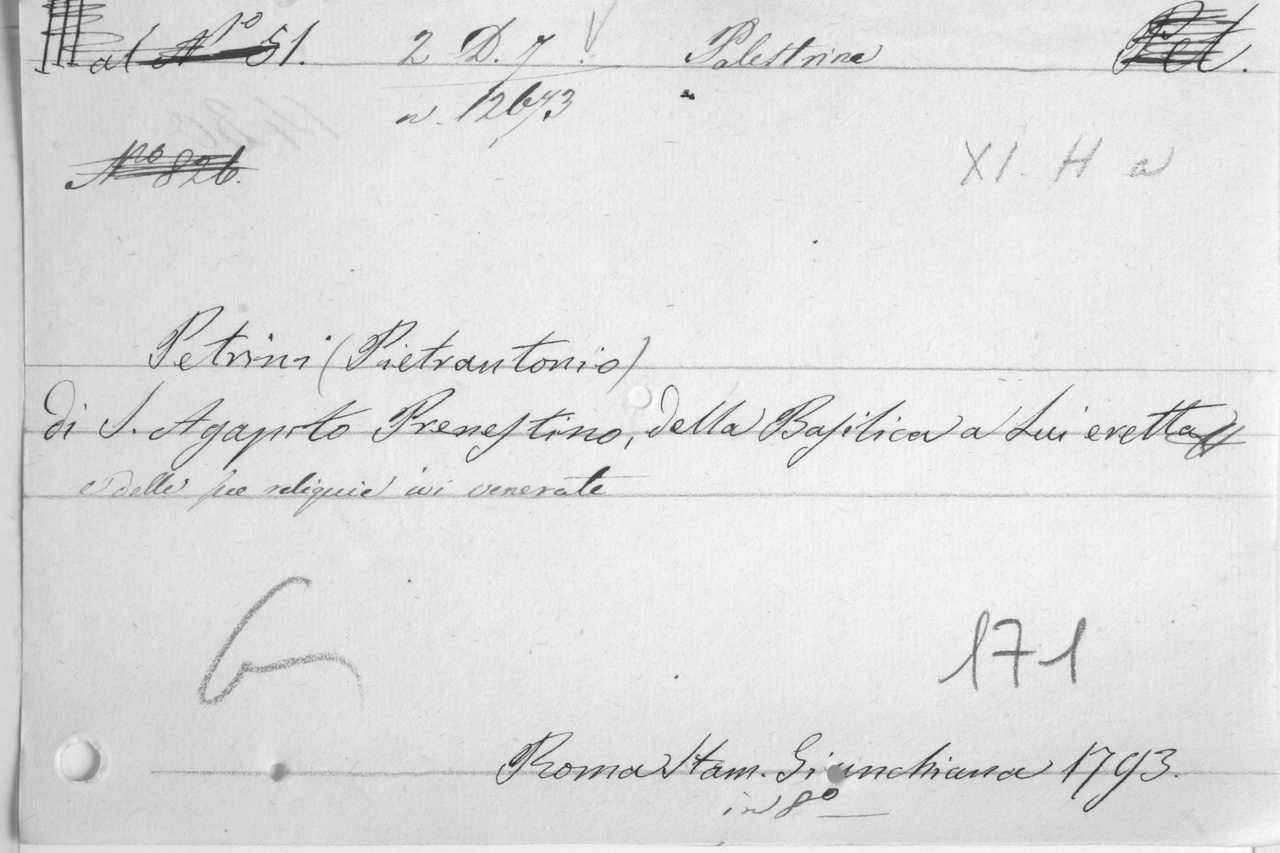 al Nº 51. 2 D. 7 Palestrina Pet.
n. 12673
Nº 826. XI. H a
Petrini (Pietrantonio)
di S. Agapito Prenestino, della Basilica a Lui eretta
e delle sue reliquie ivi venerate
171
Roma Stam. Giunchiana 1793.
in 8º